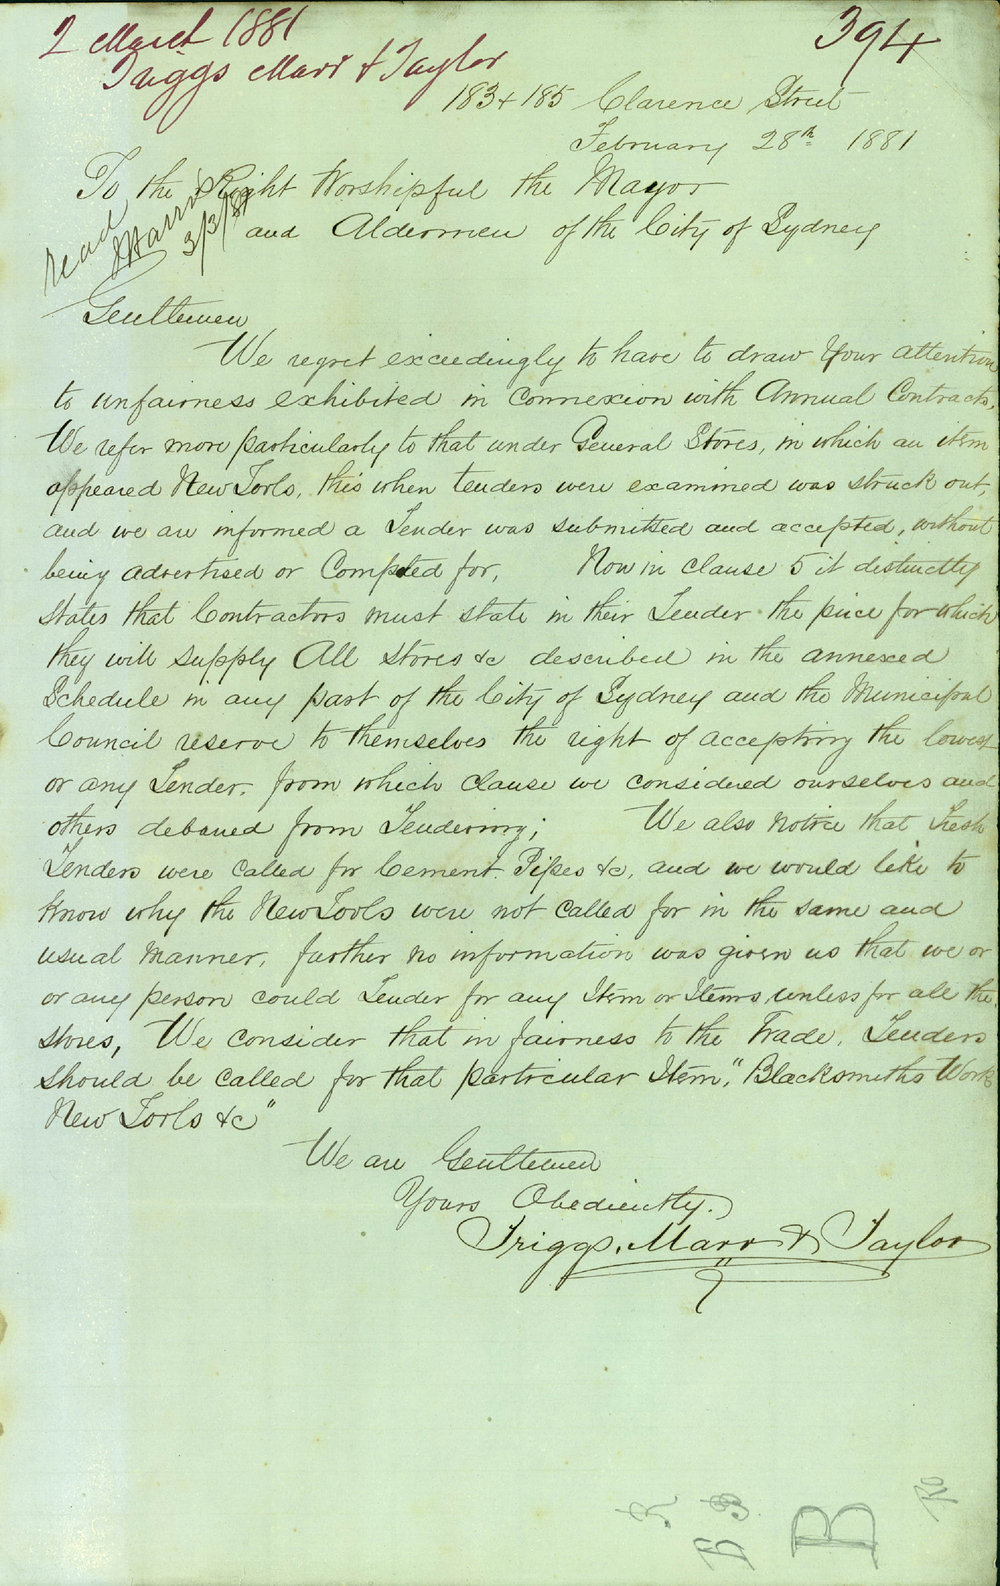 2 March 1881
394
Triggs Marr & Taylor
183 & 185 Clarence Street
February 28th 1881
To the Right Worshipful the Mayor
and Aldermen of the City of Sydney
read
3/3/81
Gentlemen
We regret exceedingly to have to draw your attention
to unfairness exhibited in connexion with Annual Contracts,
We refer more particularly to that under General Stores, in which an item
appeared New Tools, this when tenders were examined was struck out,
and we are informed a Tender was submitted and accepted, without
being advertised or Competed for, Now in clause 5 it distinctly
states that Contractors must state in their Tender the price for which
they will supply All stores &c described in the annexed
Schedule in any part of the City of Sydney and the Municipal
Council reserve to themselves the right of accepting the lowest
or any Tender. from which clause we considered ourselves and
others debarred from Tendering; We also notice that Fresh
Tenders were called for Cement. Pipes &c, and we would like to
know why the New Tools were not called for in the same and
usual manner, further no information was given us that we or
or any person could Tender for any Item or Items, unless for all the
stores, We consider that in fairness to the Trade, Tenders
should be called for that particular Item, "Blacksmiths Work
New Tools &c"
We are Gentlemen
Yours Obediently.
Triggs, Marr & Taylor
B